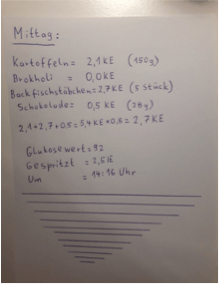 Mittag:
Kartoffeln = 2,1 KE (150g)
Brokholi = 0,0 KE
Backfischstäbchen = 2,7 KE (5 stück)
Schokolade = 0,5 KE (28g)
2,1+2,7+0,5 = 5,4 KE × 0,5 = 2,7 KE
Glukosewert = 92
Gespritzt = 2,5 IE
Um = 14:16 Uhr